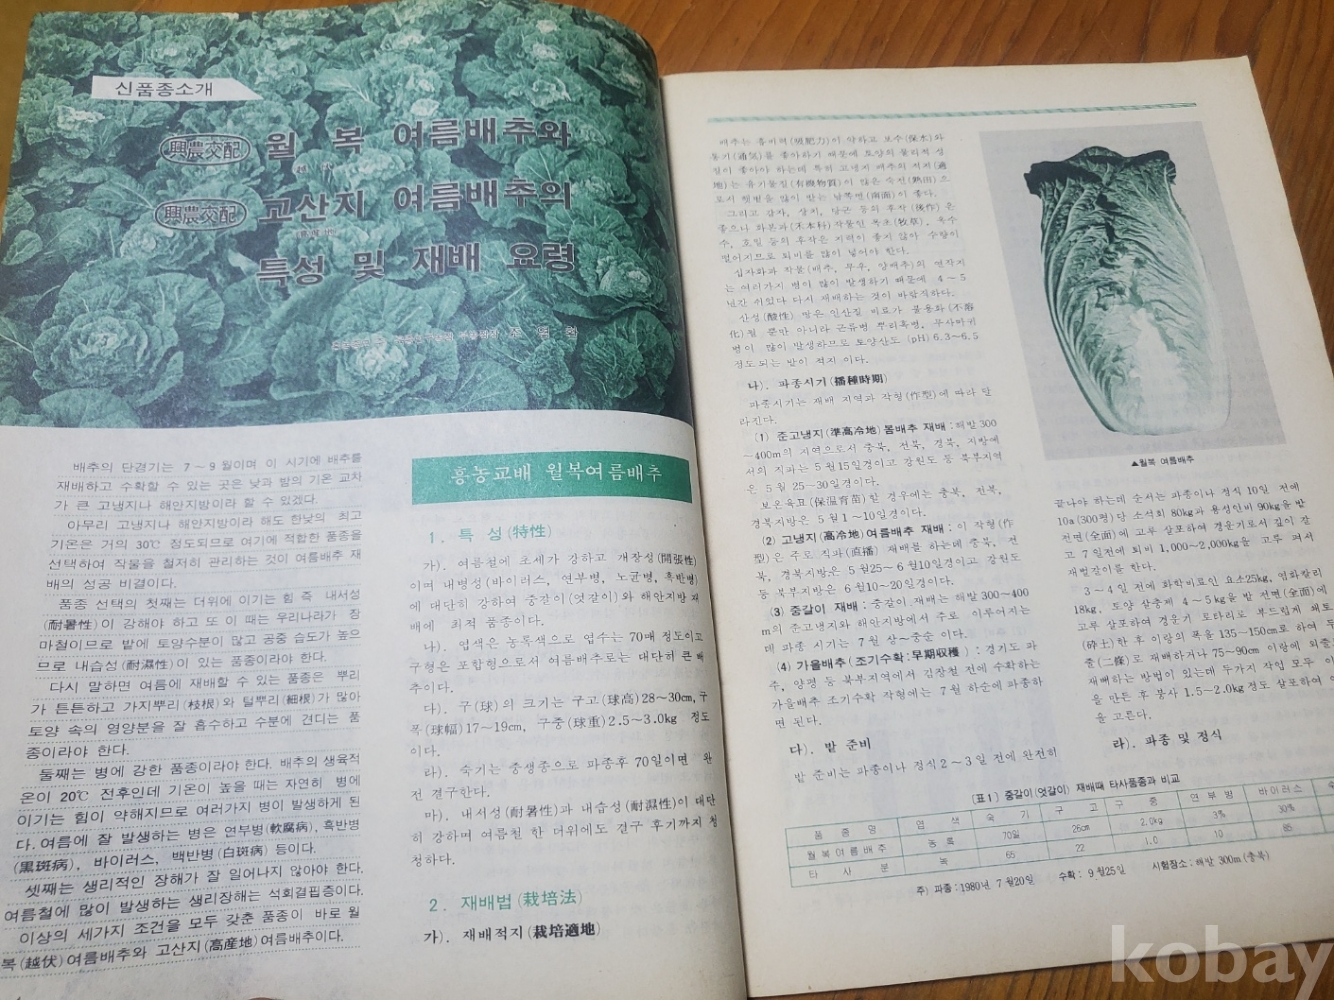 신품종소개
興農交配 월복 여름배추와
興農交配 고산지 여름배추의
특성 및 재배 요령
배추의 단경기는 7～9월이며 이 시기에 배추를
재배하고 수확할 수 있는 곳은 낮과 밤의 기온 교차
가 큰 고냉지나 해안지방이라 할 수 있겠다.
아무리 고냉지나 해안지방이라 해도 한낮의 최고
기온은 거의 30℃ 정도되므로 여기에 적합한 품종을
선택하여 작물을 철저히 관리하는 것이 여름배추 재
배의 성공 비결이다.
품종 선택의 첫째는 더위에 이기는 힘 즉 내서성
(耐暑性)이 강해야 하고 또 이 때는 우리나라가 장
마철이므로 밭에 토양수분이 많고 공중 습도가 높으
므로 내습성(耐濕性)이 있는 품종이라야 한다.
다시 말하면 여름에 재배할 수 있는 품종은 뿌리
가 튼튼하고 가지뿌리(枝根)와 털뿌리(細根)가 많아
토양 속의 영양분을 잘 흡수하고 수분에 견디는 품
종이라야 한다.
둘째는 병에 강한 품종이라야 한다. 배추의 생육적
온이 20℃ 전후인데 기온이 높을 때는 자연히 병에
이기는 힘이 약해지므로 여러가지 병이 발생하게 된
다. 여름에 잘 발생하는 병은 연부병(軟腐病), 흑반병
(黒斑病), 바이러스, 백반병(白斑病) 등이다.
셋째는 생리적인 장해가 잘 일어나지 않아야 한다.
여름철에 많이 발생하는 생리장해는 석회결핍증이다.
이상의 세가지 조건을 모두 갖춘 품종이 바로 월
복(越伏)여름배추와 고산지(高産地)여름배추이다.
흥농교배 월복여름배추
1. 특 성(特性)
가). 여름철에 초세가 강하고 개장성(開張性)
이며 내병성(바이러스, 연부병, 노균병, 흑반병)
에 대단히 강하여 중갈이(엇갈이)와 해안지방재
배에 최적 품종이다.
나). 엽색은 농록색으로 엽수는 70매 정도이고
구형은 포합형으로서 여름배추로는 대단히 큰 배
추이다.
다). 구(球)의 크기는 구고(球高)28～30cm, 구
폭(球幅)17～19cm, 구중(球重)2.5～3.0kg 정도
이다.
라). 숙기는 중생종으로 파종후 70일이면 완
전 결구한다.
마). 내서성(耐暑性)과 내습성(耐濕性)이 대단
히 강하며 여름철 한 더위에도 결구 후기까지 청
청하다.
2. 재배법(栽培法)
가). 재배적지(栽培適地)
배추는 흡비력(吸肥力)이 약하고 보수(保水)와
통기(通気)를 좋아하기 때문에 토양의 물리적 성
질이 좋아야 하는데 특히 고냉지 배추의 적지(適
地)는 유기물질(有機物質)이 많은 숙전(熟田)으
로서 햇볕을 많이 받는 남쪽면(南面)이 좋다.
그리고 감자, 상치, 당근 등의 후작(後作)은
좋으나 화본과(禾本科)작물인 목초(牧草), 옥수
수, 호밀 등의 후작은 지력이 좋지 않아 수량이
떨어지므로 퇴비를 많이 넣어야 한다.
십자화과 작물(배추, 무우, 양배추)의 연작지
는 여러가지 병이 많이 발생하기 때문에 4～5
년간 쉬었다 다시 재배하는 것이 바람직하다.
산성(酸性) 밭은 인산질 비료가 불용화(不溶
化)될 뿐만 아니라 근류병 뿌리혹병, 무사마귀
병이 많이 발생하므로 토양산도 (pH) 6.3～6.5
정도되는 밭이 적지 이다.
나). 파종시기(播種時期)
파종시기는 재배 지역과 작형(作型)에 따라 달
라진다.
(1) 준고냉지(準高冷地) 봄배추 재배 : 해발 300
～400m의 지역으로서 충북, 전북, 경북, 지방에
서의 직파는 5월15일경이고 강원도 등 북부지역
은 5월 25～30일경이다.
보온육묘(保温育苗)할 경우에는 충북, 전북,
경북지방은 5월 1～10일경이다.
(2) 고냉지(高冷地)여름배추 재배 : 이 작형(作
型)은 주로 직파(直播) 재배를 하는데 충북, 전
북, 경북지방은 5월25～6월10일경이고 강원도
등 북부지방은 6월10～20일경이다.
(3) 중갈이 재배 : 중갈이 재배는 해발 300～400
m의 준고냉지와 해안지방에서 주로 이루어지는
데 파종 시기는 7월 상～중순 이다.
(4) 가을배추(조기수확 : 早期収穫) : 경기도 파
주, 양평 등 북부지역에서 김장철 전에 수확하는
가을배추 조기수확 작형에는 7월 하순에 파종하
면 된다.
다). 밭 준비
밭 준비는 파종이나 정식 2～3일 전에 완전히
▲월복 여름배추
끝나야 하는데 순서는 파종이나 정식 10일 전에
10a(300평)당 소석회 80kg과 용성인비 90kg을 밭
전면(全面)에 고루 살포하여 경운기로서 깊이 갈
고 7일전에 퇴비 1,000～2,000kg을 고루 펴서
재벌갈이를 한다.
3～4일 전에 화학비료인 요소25kg, 염화칼리
18kg, 토양 살충제 4～5kg을 밭 전면(全面)에
고루 살포하여 경운기 로타리로 부드럽게 쇄토
(砕土)한 후 이랑의 폭을 135～150cm로 하여 두
줄(二條)로 재배하거나 75～90cm 이랑에 외줄
재배하는 방법이 있는데 두가지 작업 모두 이
을 만든 후 붕사 1.5～2.0kg정도 살포하여
을 고른다.
라). 파종 및 정식
〔표1〕 중갈이(엇갈이) 재배때 타사품종과 비교
품종명 엽색 숙기 구고 구중 연부병 바이러스
월복여름배추 농록 70일 26cm 2.0kg 3% 30%
타사분 녹 65 22 1.0 10 85
주) 파종 : 1980년 7월20일 수확 : 9월25일 시험장소 : 해발 300m (충북)
kobay